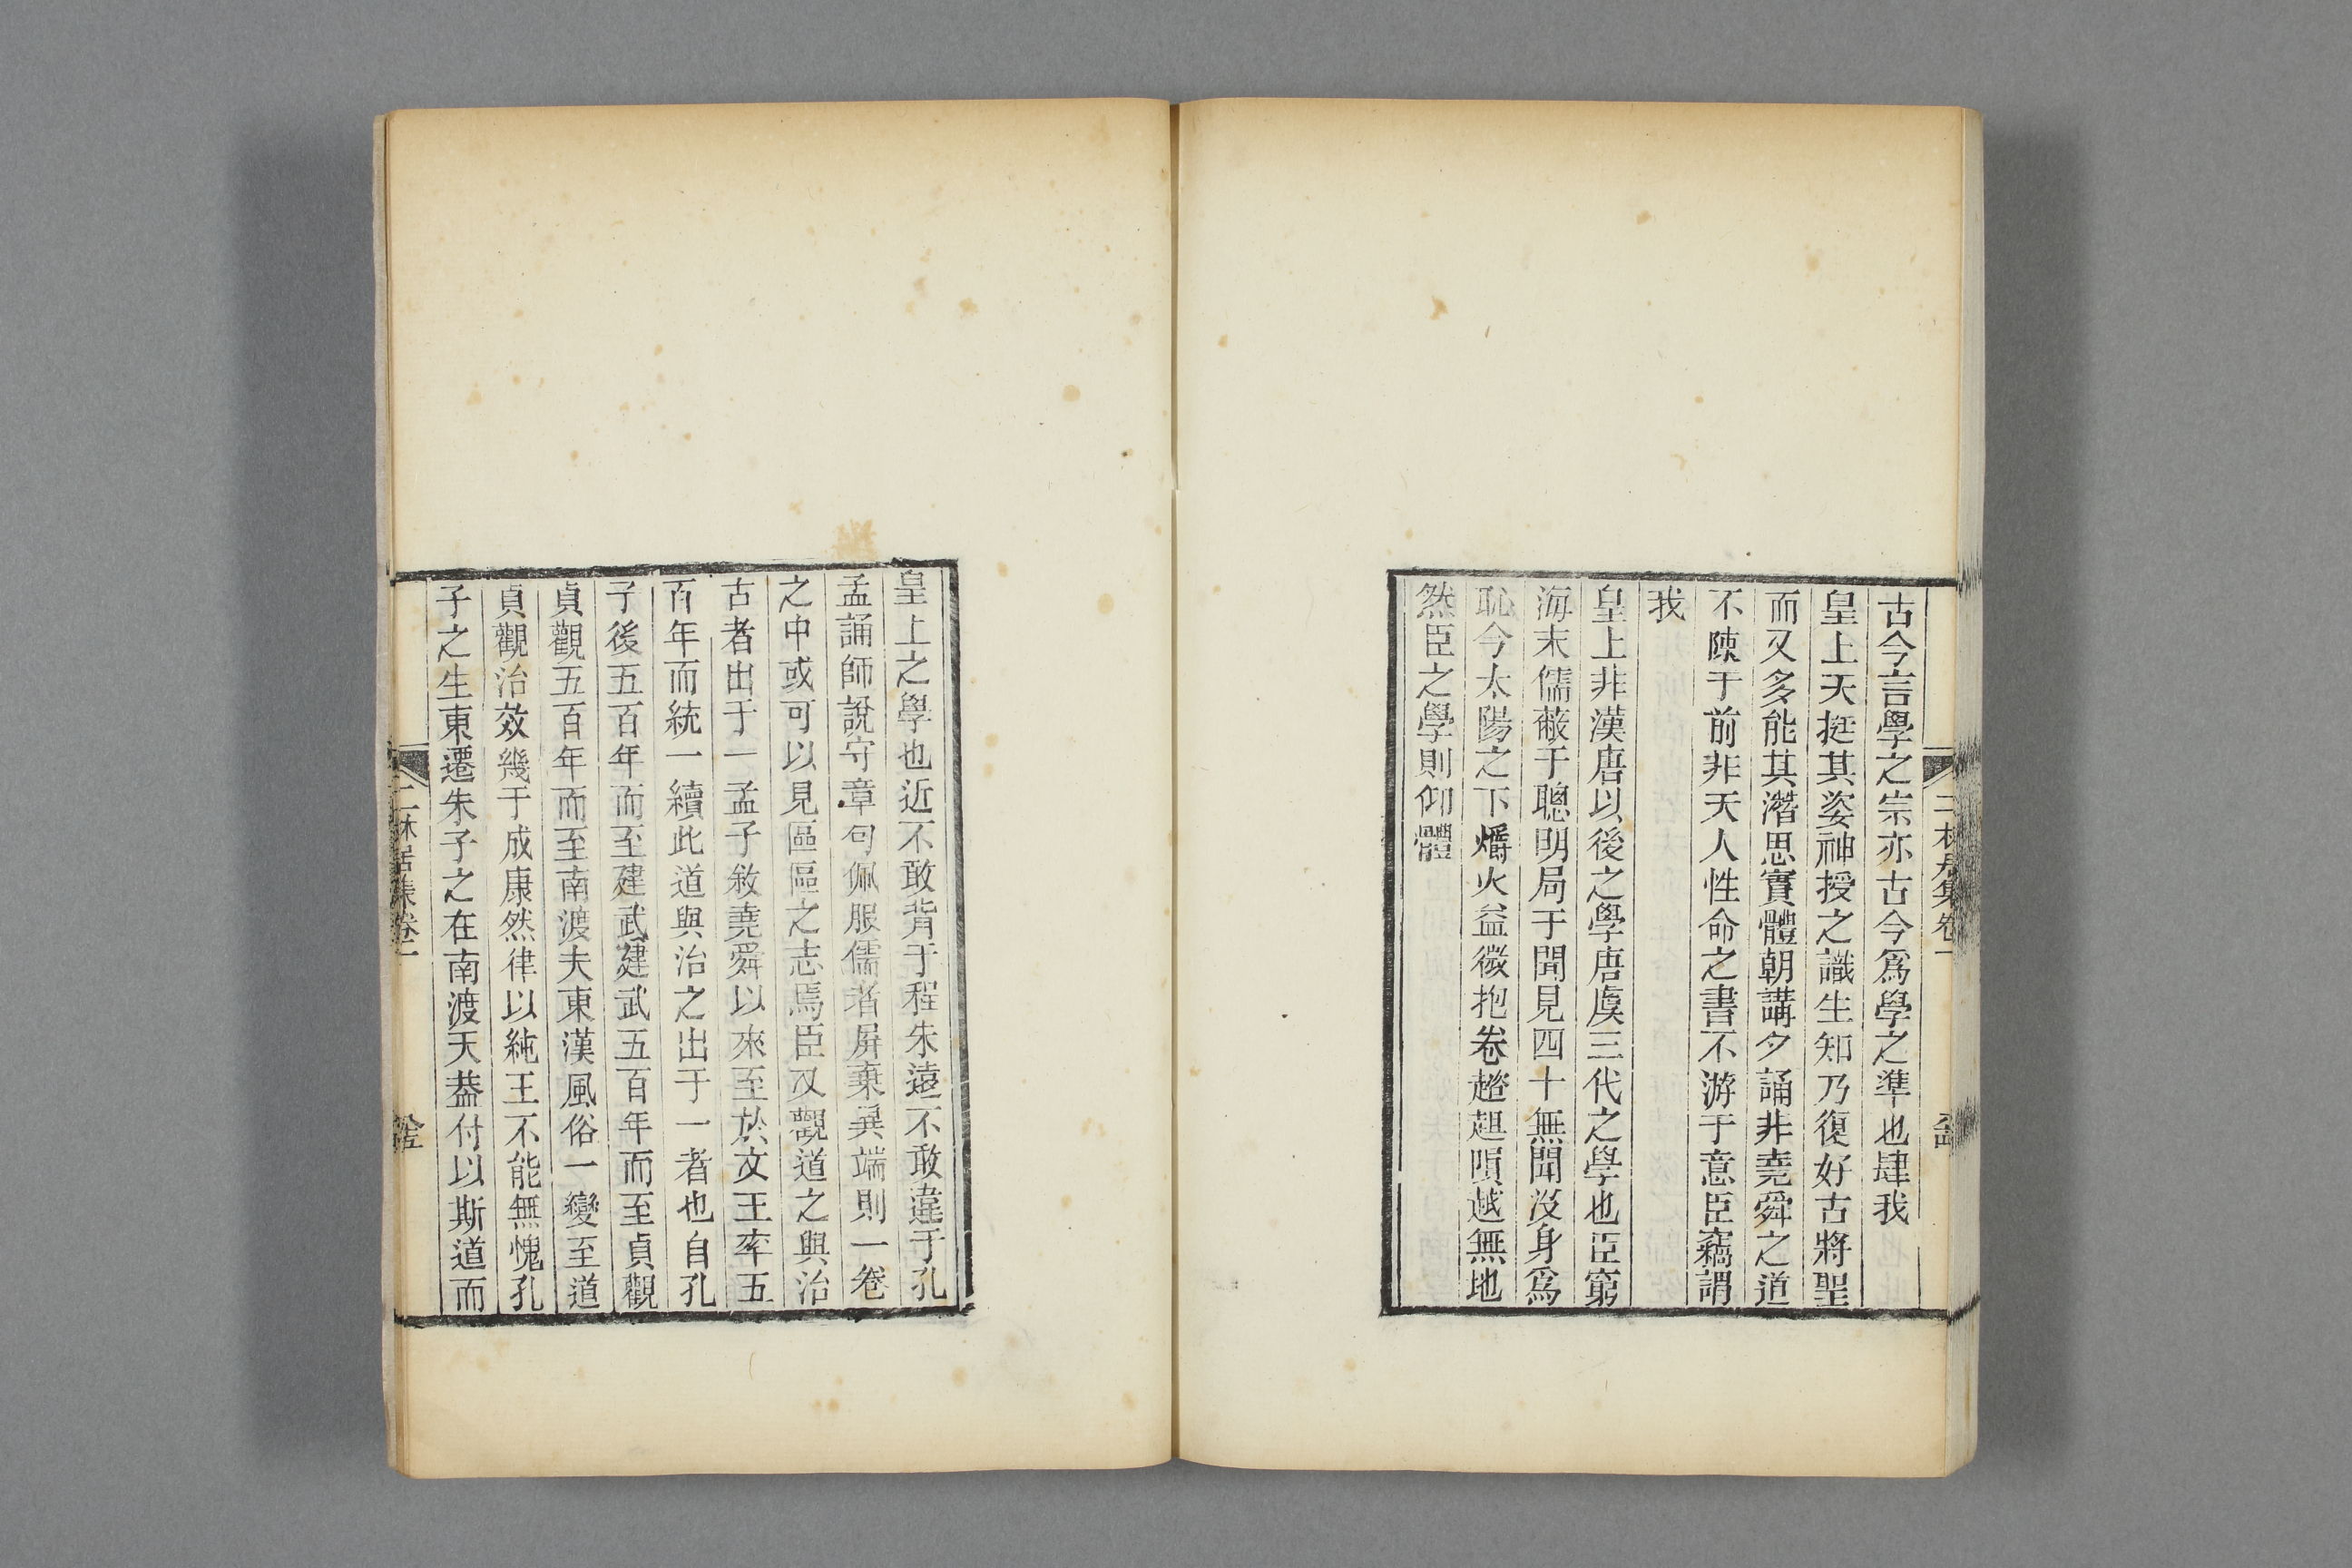 古今言學之宗亦古今爲學之準也肆我
皇上天挺其姿神授之識生知乃復好古將聖
而又多能其潛思實體朝講夕誦非堯舜之道
不陳于前非天人性命之書不游于意臣竊謂
我
皇上非漢唐以後之學唐虞三代之學也臣窮
海末儒蔽于聰明局于聞見四十無聞沒身爲
恥今太陽之下爝火益微抱卷趦趄隕越無地
然臣之學則仰體
皇上之學也近不敢背于程朱遠不敢違于孔
孟誦師說守章句佩服儒者屏棄異端則一卷
之中或可以見區區之志焉臣又觀道之與治
古者出于一孟子敘堯舜以來至於文王率五
百年而統一續此道與治之出于一者也自孔
子後五百年而至建武建武五百年而至貞觀
貞觀五百年而至南渡夫東漢風俗一變至道
貞觀治效幾于成康然律以純王不能無愧孔
子之生東遷朱子之在南渡天葢付以斯道而